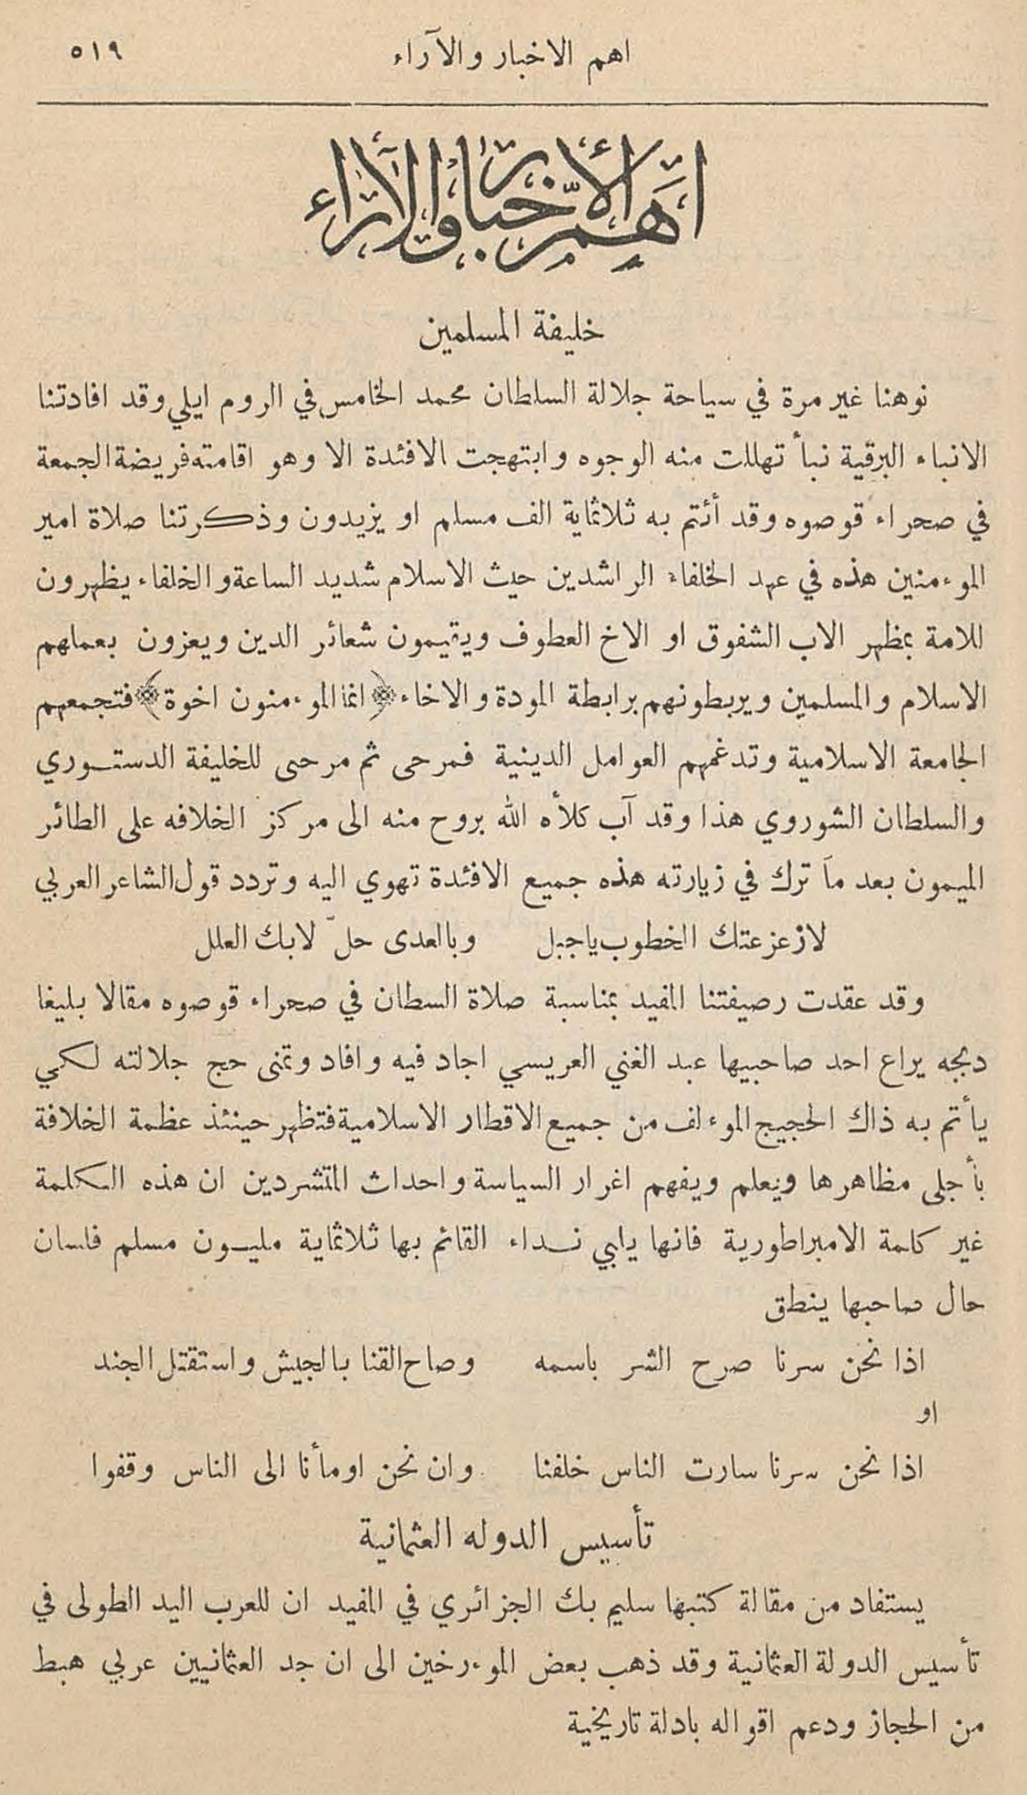 اهم الاخبار والآراء ٥١٩
اهم الأخبار والآراء
خليفة المسلمين
نوهنا غير مرة في سياحة جلالة السلطان محمد الخامس في الروم ايلي وقد افادتنا
الانباء البرقية نبأ تهللت منه الوجوه وابتهجت الافئدة الا وهو اقامته فريضة الجمعة
في صحراء قوصوه وقد أئتم به ثلاثماية الف مسلم او يزيدون وذكرتنا صلاة امير
الموءمنين هذه في عهد الخلفاء الراشدين حيث الاسلام شديد الساعة والخلفاء يظهرون
للامة بمظهر الاب الشفوق او الاخ العطوف ويقيمون شعائر الدين ويعزون بعملهم
الاسلام والمسلمين ويربطونهم برابطة المودة والاخاء ﴿ انما الموءمنون اخوة ﴾ فتجمعهم
الجامعة الاسلامية وتدغمهم العوامل الدينية فمرحى ثم مرحى للخليفة الدستوري
والسلطان الشوروي هذا وقد آب كلأه الله بروح منه الى مركز الخلافه على الطائر
الميمون بعد ما ترك في زيارته هذه جميع الافئدة تهوي اليه وتردد قول الشاعر العربي
لازعزعتك الخطوب ياجبل وبالعدى حلّ لابك العلل
وقد عقدت رصيفتنا المفيد بمناسبة صلاة السطان في صحراء قوصوه مقالا بليغا
دبجه يراع احد صاحبيها عبد الغني العريسي اجاد فيه وافاد وتمنى حج جلالته لكي
يأتم به ذاك الحجيج الموءلف من جميع الاقطار الاسلامية فتظهر حينئذ عظمة الخلافة
بأجلى مظاهرها ويعلم ويفهم اغرار السياسة واحداث المتشردين ان هذه الكلمة
غير كلمة الامبراطورية فانها يلبي نداء القائم بها ثلاثماية مليون مسلم فلسان
حال صاحبها ينطق
اذا نحن سرنا صرح الشر باسمه وصاح القنا بالجيش واستقتل الجند
او
اذا نحن سرنا سارت الناس خلفنا وان نحن اومأنا الى الناس وقفوا
تأسيس الدوله العثمانية
يستفاد من مقالة كتبها سليم بك الجزائري في المفيد ان للعرب اليد الطولى في
تأسيس الدولة العثمانية وقد ذهب بعض الموءرخين الى ان جد العثمانيين عربي هبط
من الحجاز ودعم اقواله بادلة تاريخية